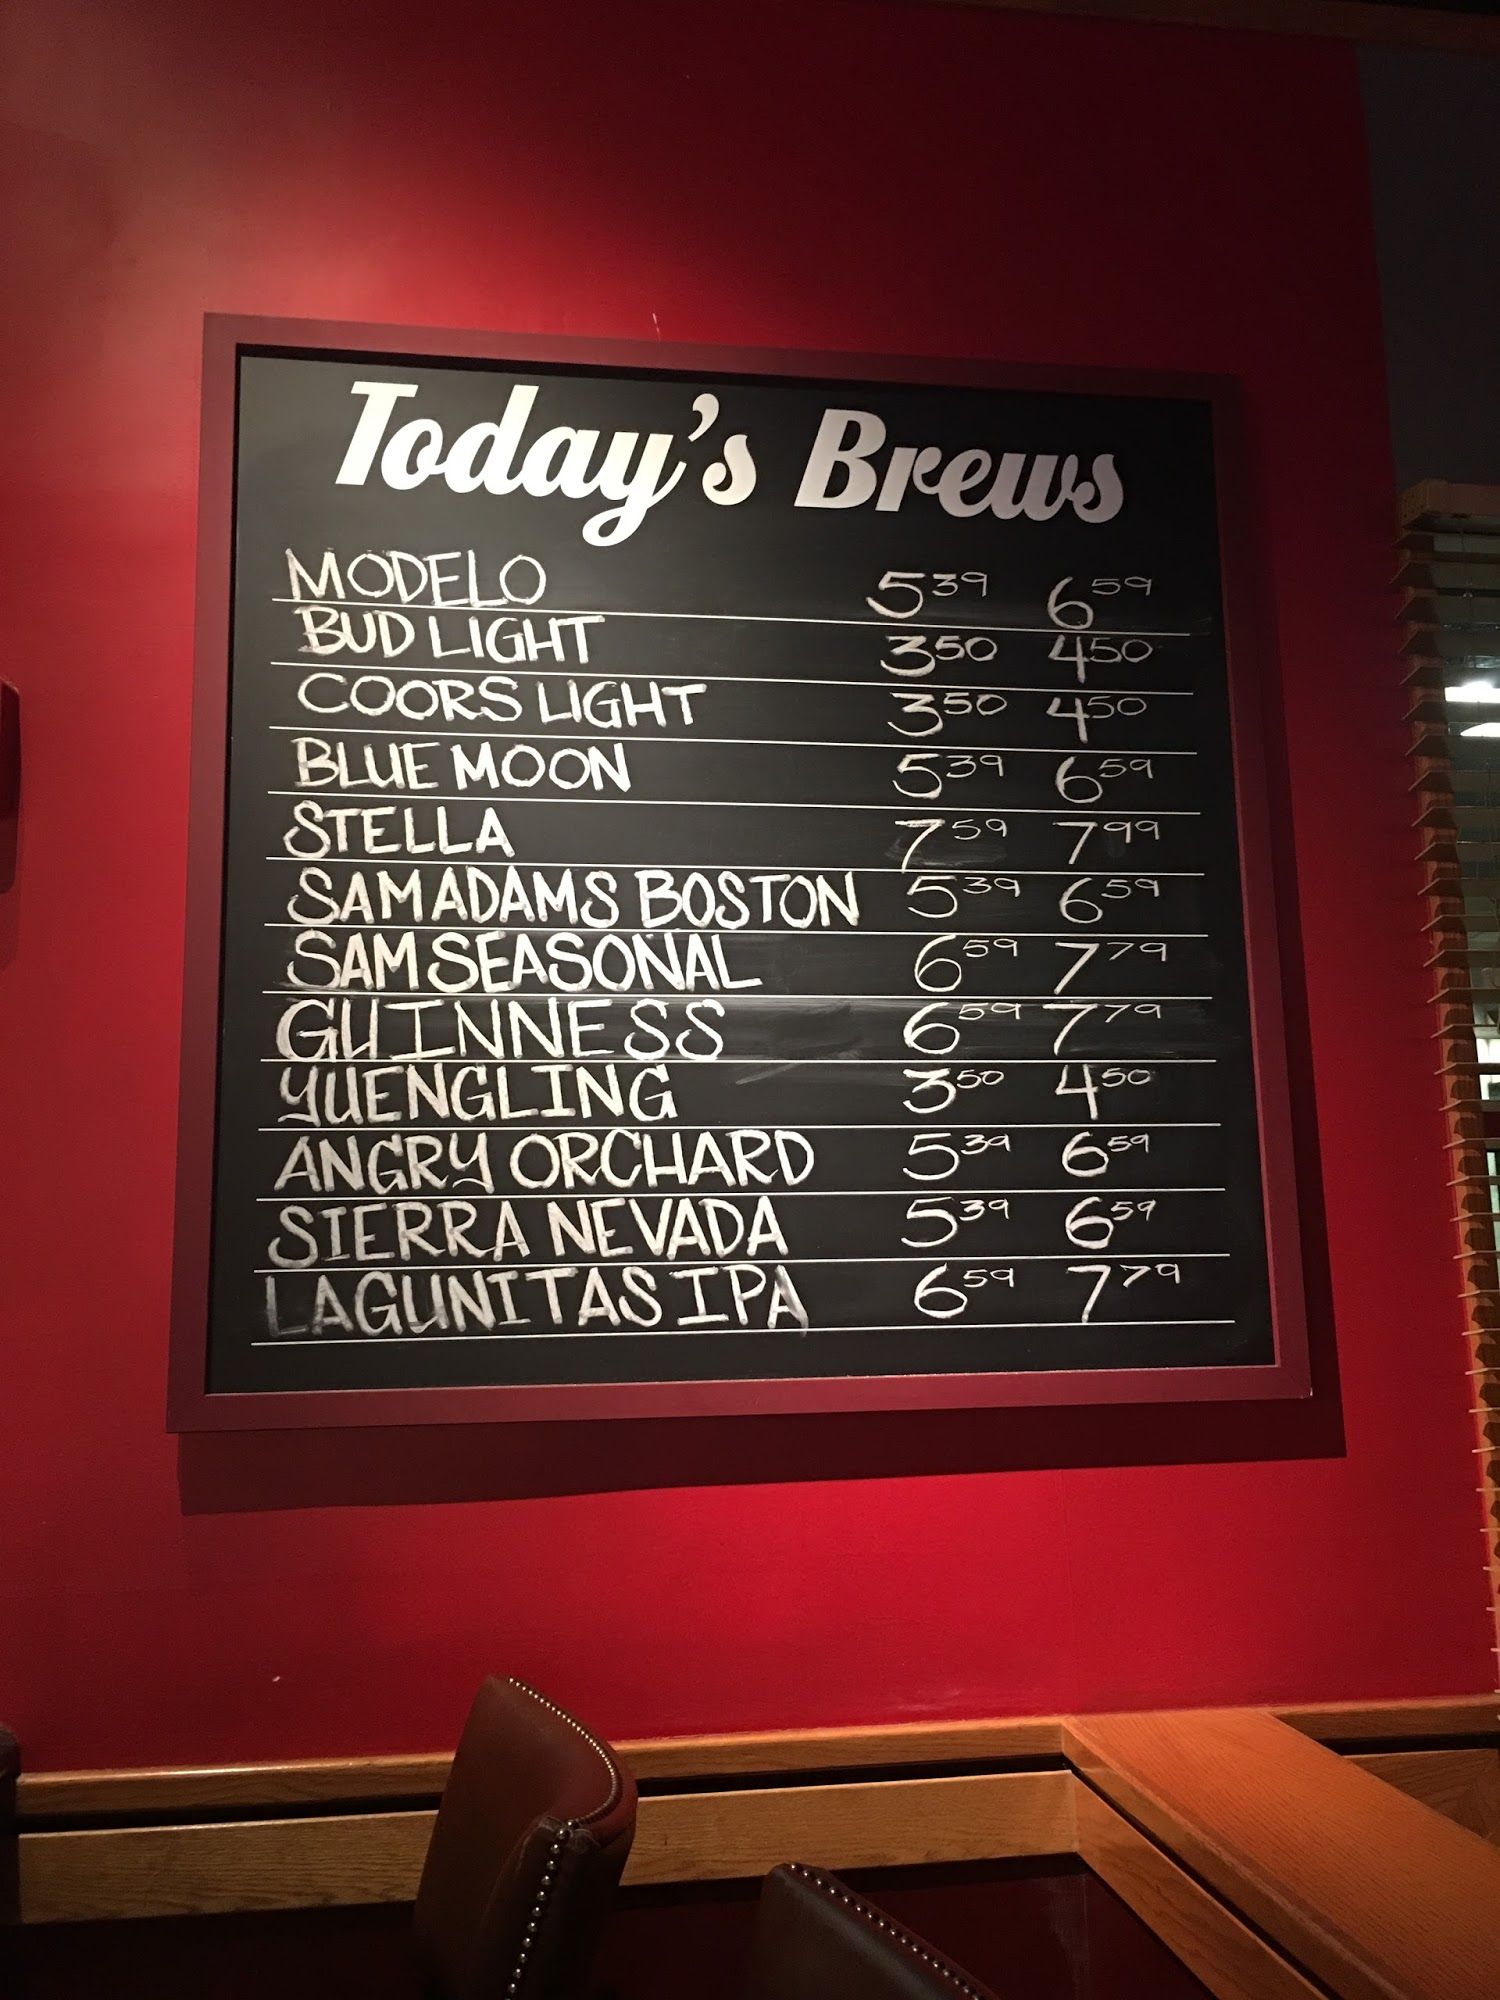 Today's Brews
MODELO 5³⁹ 6⁵⁹
BUD LIGHT 3⁵⁰ 4⁵⁰
COORS LIGHT 3⁵⁰ 4⁵⁰
BLUE MOON 5³⁹ 6⁵⁹
STELLA 7⁵⁹ 7⁹⁹
SAM ADAMS BOSTON 5³⁹ 6⁵⁹
SAM SEASONAL 6⁵⁹ 7⁷⁹
GUINNESS 6⁵⁹ 7⁷⁹
YUENGLING 3⁵⁰ 4⁵⁰
ANGRY ORCHARD 5³⁹ 6⁵⁹
SIERRA NEVADA 5³⁹ 6⁵⁹
LAGUNITAS IPA 6⁵⁹ 7⁷⁹